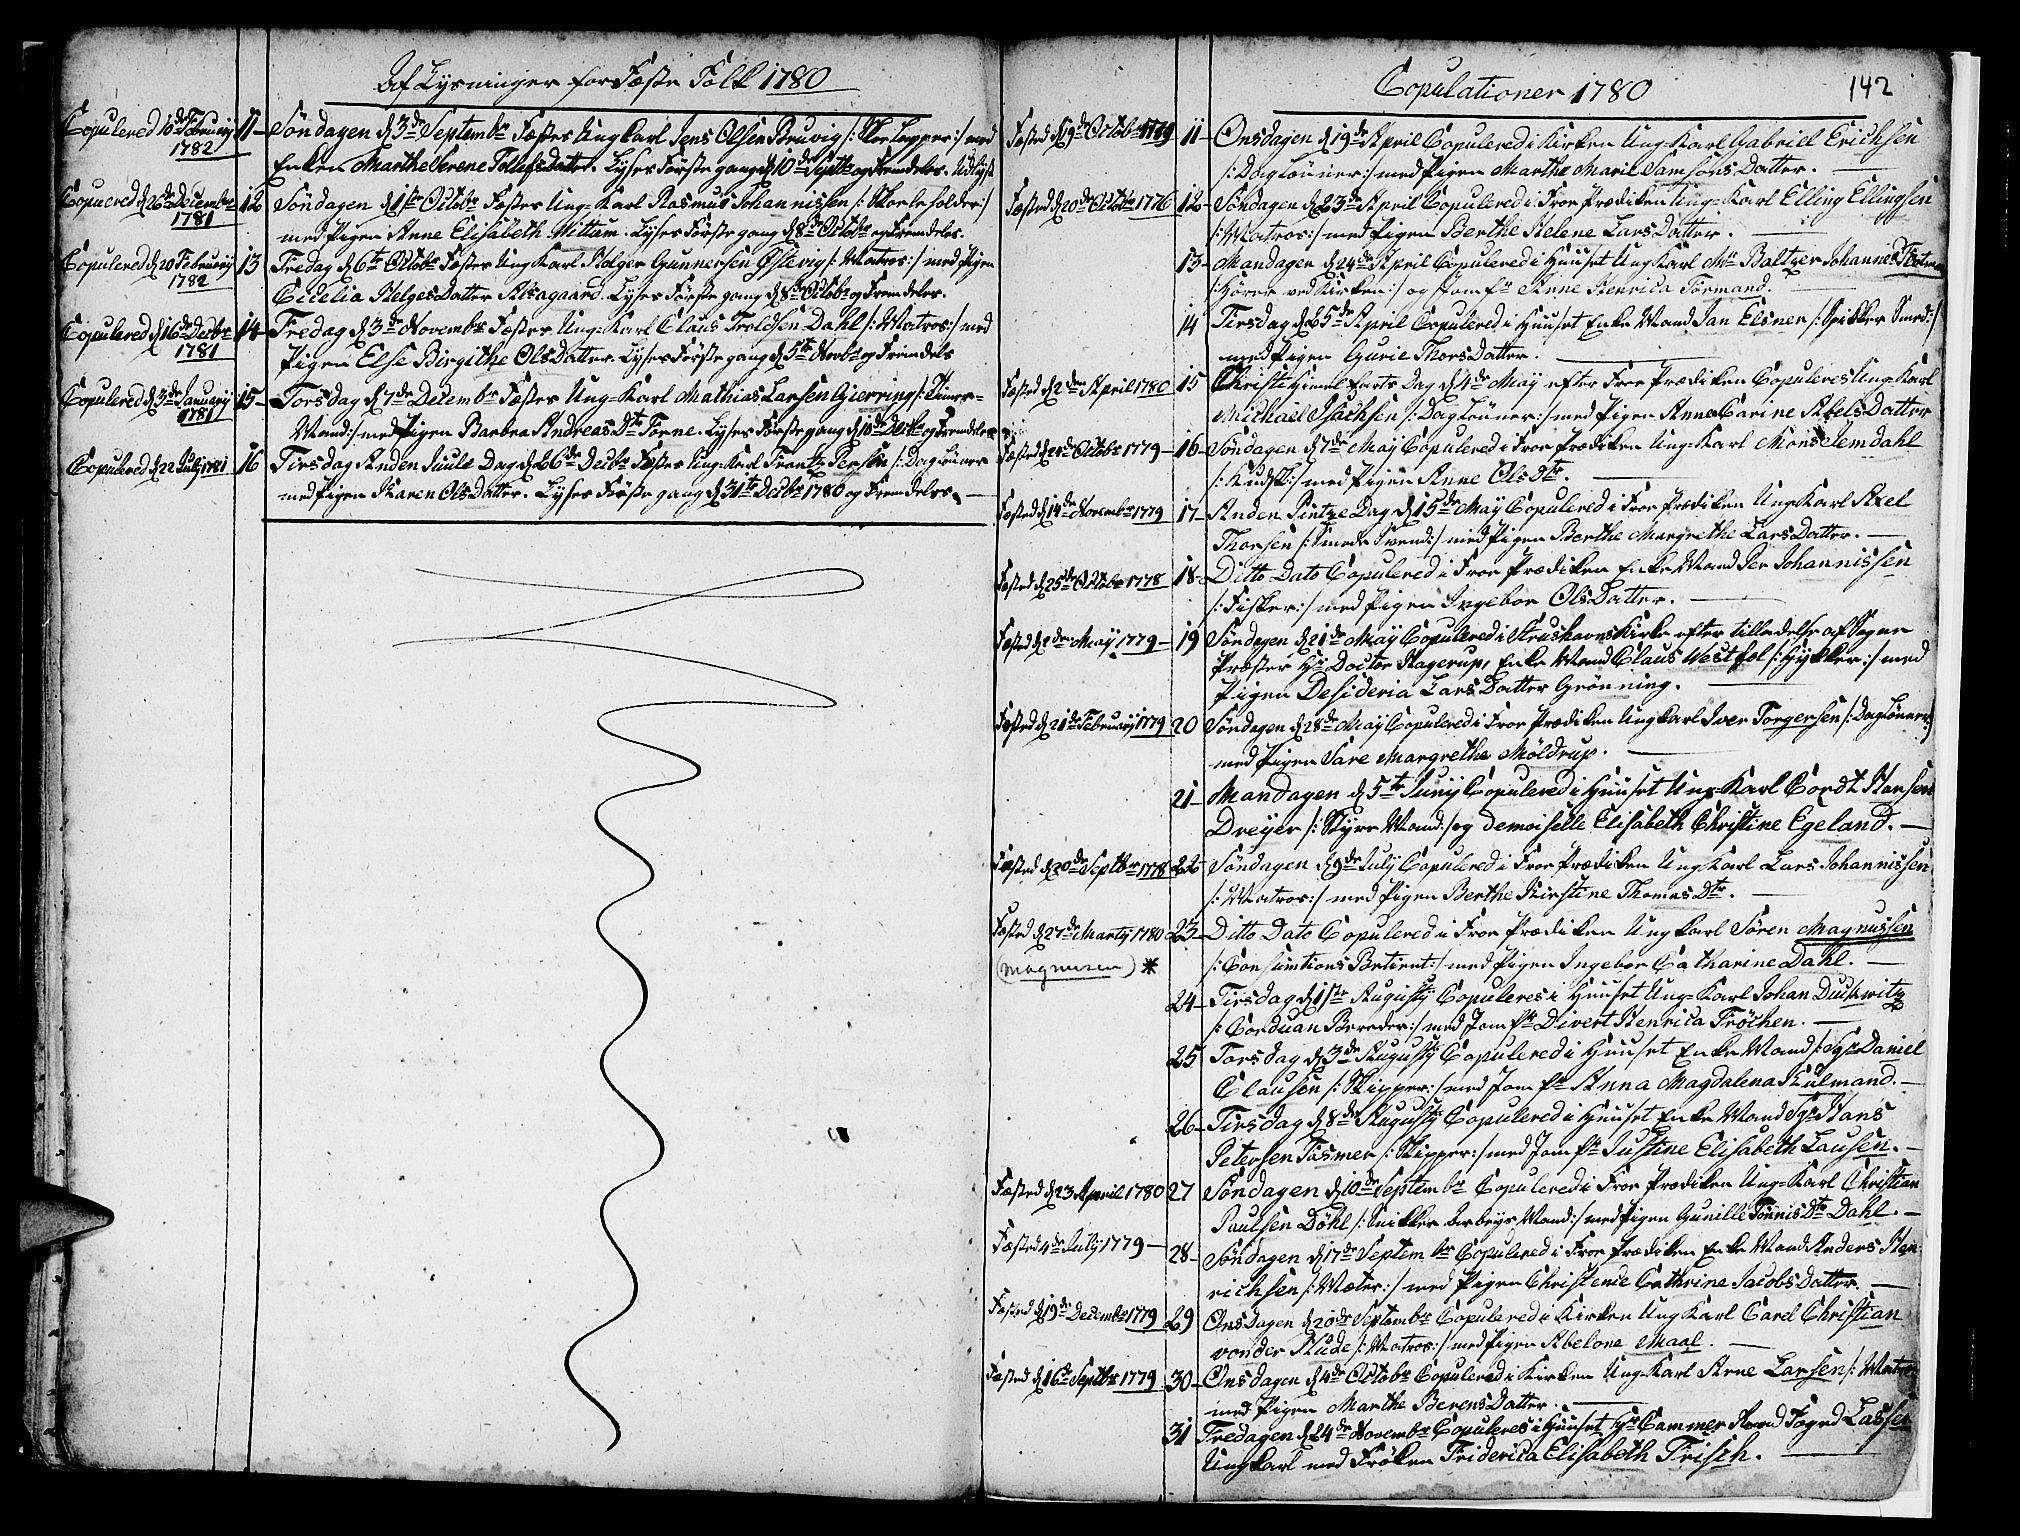 Af Lysninger for Fæste Folk 1780
Copulered 10de Februarij 1782
11 Söndagen d 3de Septembr Fæstes Ungkarl Jens Olsen Bruvig /: Skoe lapper :/ med
Enken Marthe Serene Tollefs Datter. Lyses Förste gang d 10de Septbr og Fremdeles.
Copulered d 26de Decembr 1781
12 Söndagen d 1ste Octobr Fæstes Ung-Karl Rasmus Johannissen /: Skoeleholder :/
med Pigen Anne Elisabeth Wittam. Lyses Förste gang d 8de Octobr og Fremdeles.
Copulered d 20 Februarij 1782
13 Fredag d 6te Octobr Fæstes Ung Karl Holger Gunnersen Östevig /: Matros :/ med Pigen
Cidelia Helges Datter Alsagaard. Lyses Förste gang d 8de Octobr og Fremdeles.
Copulered d 16de Decbr 1781
14 Fredag d 3de Novembr Fæstes Ung-Karl Claus Troldsen Dahl /: Matros :/ med
Pigen Else Birgithe Ols Datter. Lyses Förste gang d 5te Novbr og Fremdels
Copulered d 3de Januarij 1781
15 Torsdag d 7de Decembr Fæstes Ung-Karl Mathias Larsen Gierring /: Timer-
Mand :/ med Pigen Barbra Andreas Dtr Torne. Lyses Förste gang d 10de Decbr og Fremdeles
Copulered d 22 Julij 1781
16 Tirsdag Anden Juule Dag d 26de Decbr Fæstes Ung-Karl Frantz Persen /: Daglöner
med Pigen Karen Ols Datter. Lyses Förste gang d 31te Decbr 1780 og Fremdeles.
Copulationer 1780
142
Fæsted d 19de Octobr 1779
11 Onsdagen d 19de April Copulered i Kirken Ung-Karl Gabriell Erichsen
/: Daglönner :/ med Pigen Marthe Maril Samsons Datter.
Fæsted d 20de Octobr 1776
12 Söndagen d 23de April Copulered i Froe Prædiken Ung-Karl Elling Ellingsen
/: Matros :/ med Pigen Berthe Helene Lars Datter.
13 Mandagen d 24de April Copulered i Huuset Ung Karl Mr Baltzer Johannes
/: Hörer ved Kirken :/ og Jomfr Anne Henrica Törmand.
14 Tirsdag d 25de April Copulered i Huuset Enke Mand Jan Elsner /: Spikker Smed :/
med Pigen Gurie Thors Datter.
Fæsted d 2den April 1780
15 Christi Himel Farts Dag d 4de Maÿ efter Froe Prædiken Copuleres Ung-Karl
Michael Isachsen /: Daglönner :/ med Pigen Anne Carine Abels Datter
Fæsted d 21de Octobr 1779
16 Söndagen d 7de Maÿ Copulered i Froe Prædiken Ung-Karl Mons Jemdahl
/: Kudsk :/ med Pigen Anne Ols Dtr.
Fæsted d 14de Novembr 1779
17 Anden Pintze Dag d 15de Maÿ Copulered i Froe Prædiken Ung Karl Axel
Thorsen /: Smede Svend :/ med Pigen Berthe Margrethe Lars Datter.
Fæsted d 25de Octobr 1778
18 Ditto Dato Copulered i Froe Prædiken Enke Mand Per Johannissen
/: Fisker :/ med Pigen Ingebor Ols Datter.
Fæsted d 2den Maÿ 1779
19 Söndagen d 21de Maÿ Copulered i Aarehavns Kirke efter tilladelse af Sogne
Præsten Hr Doctor Hagerup, Enke Mand Claus Westfal /: Hykker :/ med
Pigen Desideria Lars Datter Grönning.
Fæsted d 21de Februarij 1779
20 Söndagen d 28de Maÿ Copulered i Froe Prædiken Ung Karl Iver Torgersen /: Daglönner :/
med Pigen Sare Margrethe Möldrup.
21 Mandagen d 5te Junij Copulered i Huuset Ung-Karl Cordt Hansen
Dreyer /: Styre Mand :/ og Demoiselle Elisabeth Christine Egeland.
Fæsted d 20de Septbr 1778
22 Söndagen d 9de July Copulered i Froe Prædiken Ung Karl Lars Johannissen
/: Matros :/ med Pigen Berthe Kirstine Thomes Dtr.
Fæsted d 27de Martij 1780
23 Ditto Dato Copulered i Froe Prædiken Ung Karl Sören Magnussen
(Magnusen) *
/: Consumtions Betient :/ med Pigen Ingebor Catharine Dahl.
24 Tirsdag d 1ste Augustij Copuleres i Huuset Ung-Karl Johan Duckwitz
/: Corduan Bereder :/ med Jomfr Divert Henrica Fröchen.
25 Torsdag d 3de Augustij Copulered i Huuset Enke Mand /: Sr Daniel
Clausen /: Skipper :/ med Jomfr Anna Magdalena Kulmand.
26 Tirsdag d 8de Augustij Copulered i Huuset Enke Mand Sr Hans
Petersen Tasmer /: Skipper :/ med Jomfr Justine Elisabeth Lausen.
Fæsted d 23 April 1780
27 Söndagen d 10de Septembr Copulered i Froe Prædiken Ung-Karl Christian
Paulsen Döhl /: Snikker Arbeys Mand :/ med Pigen Gunille Tönnis Dtr Dahl.
Fæsted 4de Julij 1779
28 Söndagen d 17de Septembr Copulered i Froe Prædiken Enke Mand Anders Hen-
richsen /: Væter :/ med Pigen Christence Cathrine Jacobs Datter.
Fæsted d 19de Decembr 1779
29 Onsdagen d 20de Septembr Copulered i Kirken Ung Karl Carel Christian
von der Kude /: Matros :/ med Pigen Abelone Maal.
Fæsted d 16de Septbr 1779
30 Onsdagen d 4de Octobr Copulered i Kirken Ung-Karl Arne Larsen /: Matros
med Pigen Marthe Berens Datter.
31 Fredagen d 24de Novembr Copuleres i Huuset Hr Cammer Raad Foged Lassen
Ungkarl med Fröken Friderica Elisabeth Frisch.